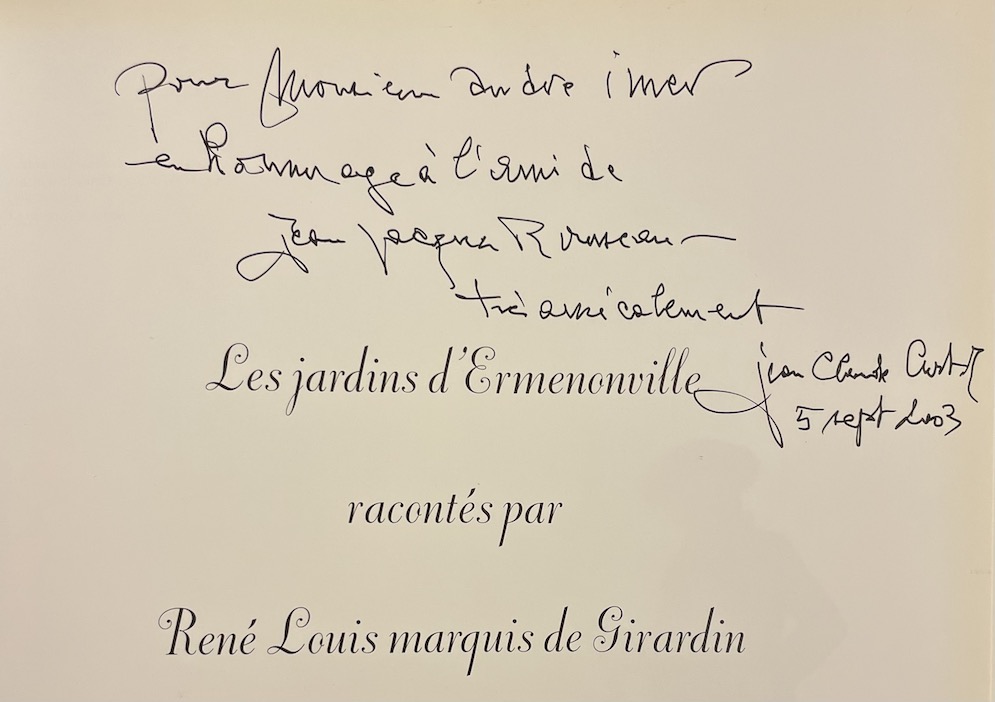 pour Monsieur andré imer
en hommage à l'ami de
Jean Jacques Rousseau
très amicalement
Les jardins d'Ermenonville
jean Claude
5 sept 2003
racontés par
René Louis marquis de Girardin